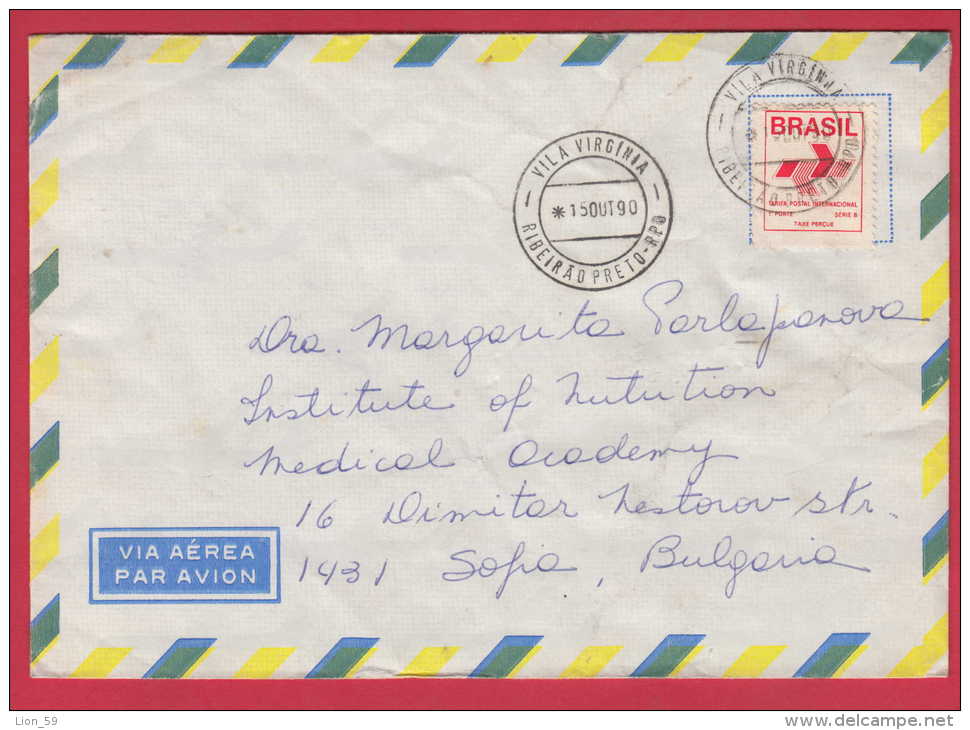 VILA VIRGÍNIA
*15OUT90
RIBEIRÃO PRETO-RPO
VILA VIRGÍNIA
RIBEIRÃO PRETO-RPO
BRASIL
TARIFA POSTAL INTERNACIONAL
1º PORTE SÉRIE B
TAXE PERÇUE
Dra. Margarita Parlapanova
Institute of Nutrition
Medical Academy
16 Dimitar Nestorov str.
1431 Sofia, Bulgaria
VIA AÉREA
PAR AVION
Lion_59
www.delcampe.net